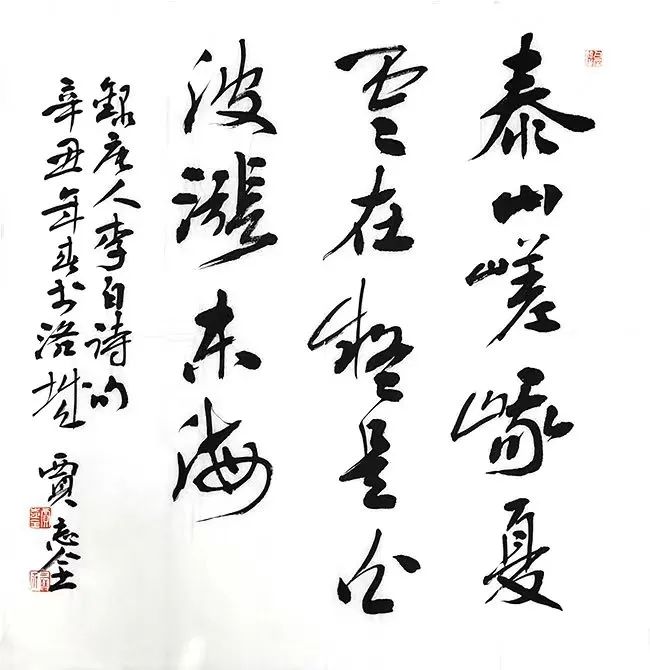 泰山嵯峨夏
雲在疑是白
波漲東海
錄唐人李白诗句
辛丑年春于洛城
賈志